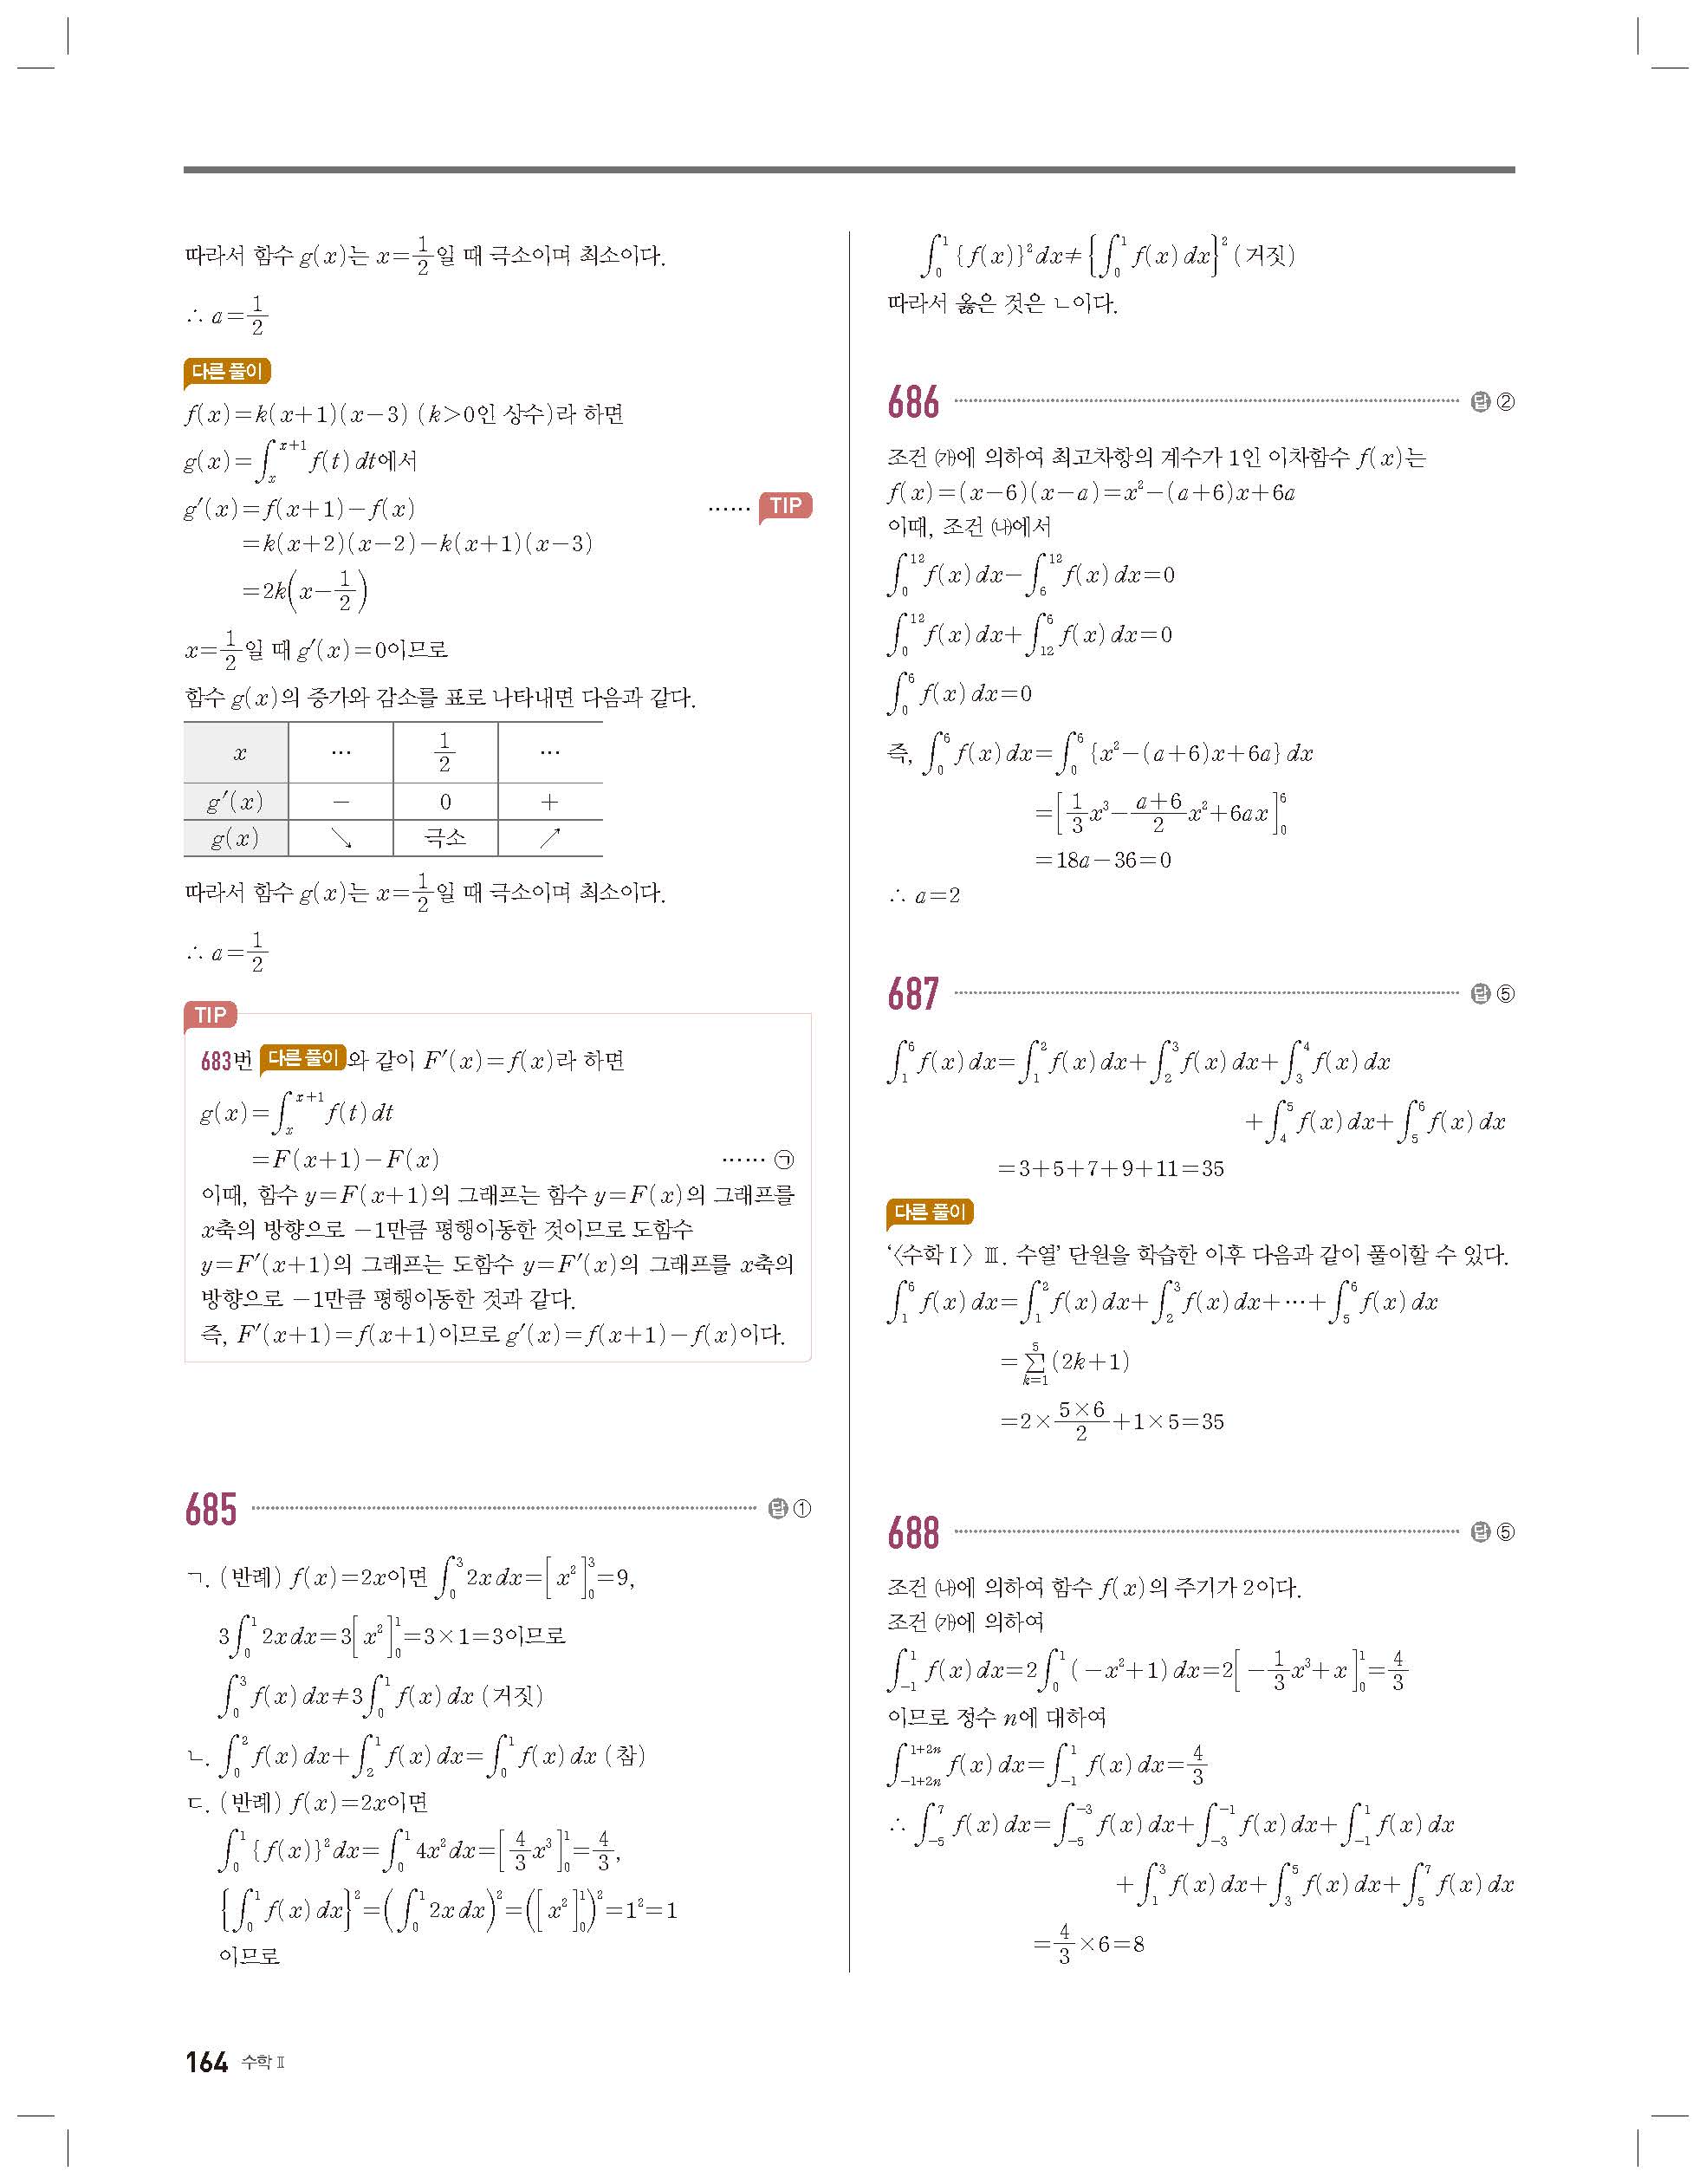 따라서 함수 g(x)는 x=1/2일 때 극소이며 최소이다.
∴ a=1/2
다른 풀이
f(x)=k(x+1)(x-3) (k>0인 상수)라 하면
g(x)=∫_x^{x+1} f(t) dt에서
g′(x)=f(x+1)-f(x) …… TIP
=k(x+2)(x-2)-k(x+1)(x-3)
=2k(x-1/2)
x=1/2일 때 g′(x)=0이므로
함수 g(x)의 증가와 감소를 표로 나타내면 다음과 같다.
x … 1/2 …
g′(x) - 0 +
g(x) ↘ 극소 ↗
따라서 함수 g(x)는 x=1/2일 때 극소이며 최소이다.
∴ a=1/2
TIP
683번 다른 풀이와 같이 F′(x)=f(x)라 하면
g(x)=∫_x^{x+1} f(t) dt
=F(x+1)-F(x) …… ㉠
이때, 함수 y=F(x+1)의 그래프는 함수 y=F(x)의 그래프를
x축의 방향으로 -1만큼 평행이동한 것이므로 도함수
y=F′(x+1)의 그래프는 도함수 y=F′(x)의 그래프를 x축의
방향으로 -1만큼 평행이동한 것과 같다.
즉, F′(x+1)=f(x+1)이므로 g′(x)=f(x+1)-f(x)이다.
685 답 ①
ㄱ. (반례) f(x)=2x이면 ∫_0^3 2x dx=[x²]_0^3=9,
3∫_0^1 2x dx=3[x²]_0^1=3×1=3이므로
∫_0^3 f(x) dx≠3∫_0^1 f(x) dx (거짓)
ㄴ. ∫_0^2 f(x) dx+∫_2^1 f(x) dx=∫_0^1 f(x) dx (참)
ㄷ. (반례) f(x)=2x이면
∫_0^1 {f(x)}²dx=∫_0^1 4x²dx=[4/3 x³]_0^1=4/3,
{∫_0^1 f(x) dx}²=(∫_0^1 2x dx)²=([x²]_0^1)²=1²=1
이므로
∫_0^1 {f(x)}²dx≠{∫_0^1 f(x) dx}² (거짓)
따라서 옳은 것은 ㄴ이다.
686 답 ②
조건 ㈎에 의하여 최고차항의 계수가 1인 이차함수 f(x)는
f(x)=(x-6)(x-a)=x²-(a+6)x+6a
이때, 조건 ㈏에서
∫_0^12 f(x) dx-∫_6^12 f(x) dx=0
∫_0^12 f(x) dx+∫_12^6 f(x) dx=0
∫_0^6 f(x) dx=0
즉, ∫_0^6 f(x) dx=∫_0^6 {x²-(a+6)x+6a} dx
=[1/3 x³-(a+6)/2 x²+6ax]_0^6
=18a-36=0
∴ a=2
687 답 ⑤
∫_1^6 f(x) dx=∫_1^2 f(x) dx+∫_2^3 f(x) dx+∫_3^4 f(x) dx
+∫_4^5 f(x) dx+∫_5^6 f(x) dx
=3+5+7+9+11=35
다른 풀이
‘〈수학Ⅰ〉 Ⅲ. 수열’ 단원을 학습한 이후 다음과 같이 풀이할 수 있다.
∫_1^6 f(x) dx=∫_1^2 f(x) dx+∫_2^3 f(x) dx+⋯+∫_5^6 f(x) dx
=∑_{k=1}^5 (2k+1)
=2×(5×6)/2+1×5=35
688 답 ⑤
조건 ㈏에 의하여 함수 f(x)의 주기가 2이다.
조건 ㈎에 의하여
∫_{-1}^1 f(x) dx=2∫_0^1 (-x²+1) dx=2[-1/3 x³+x]_0^1=4/3
이므로 정수 n에 대하여
∫_{-1+2n}^{1+2n} f(x) dx=∫_{-1}^1 f(x) dx=4/3
∴ ∫_{-5}^7 f(x) dx=∫_{-5}^{-3} f(x) dx+∫_{-3}^{-1} f(x) dx+∫_{-1}^1 f(x) dx
+∫_1^3 f(x) dx+∫_3^5 f(x) dx+∫_5^7 f(x) dx
=4/3×6=8
164 수학Ⅱ